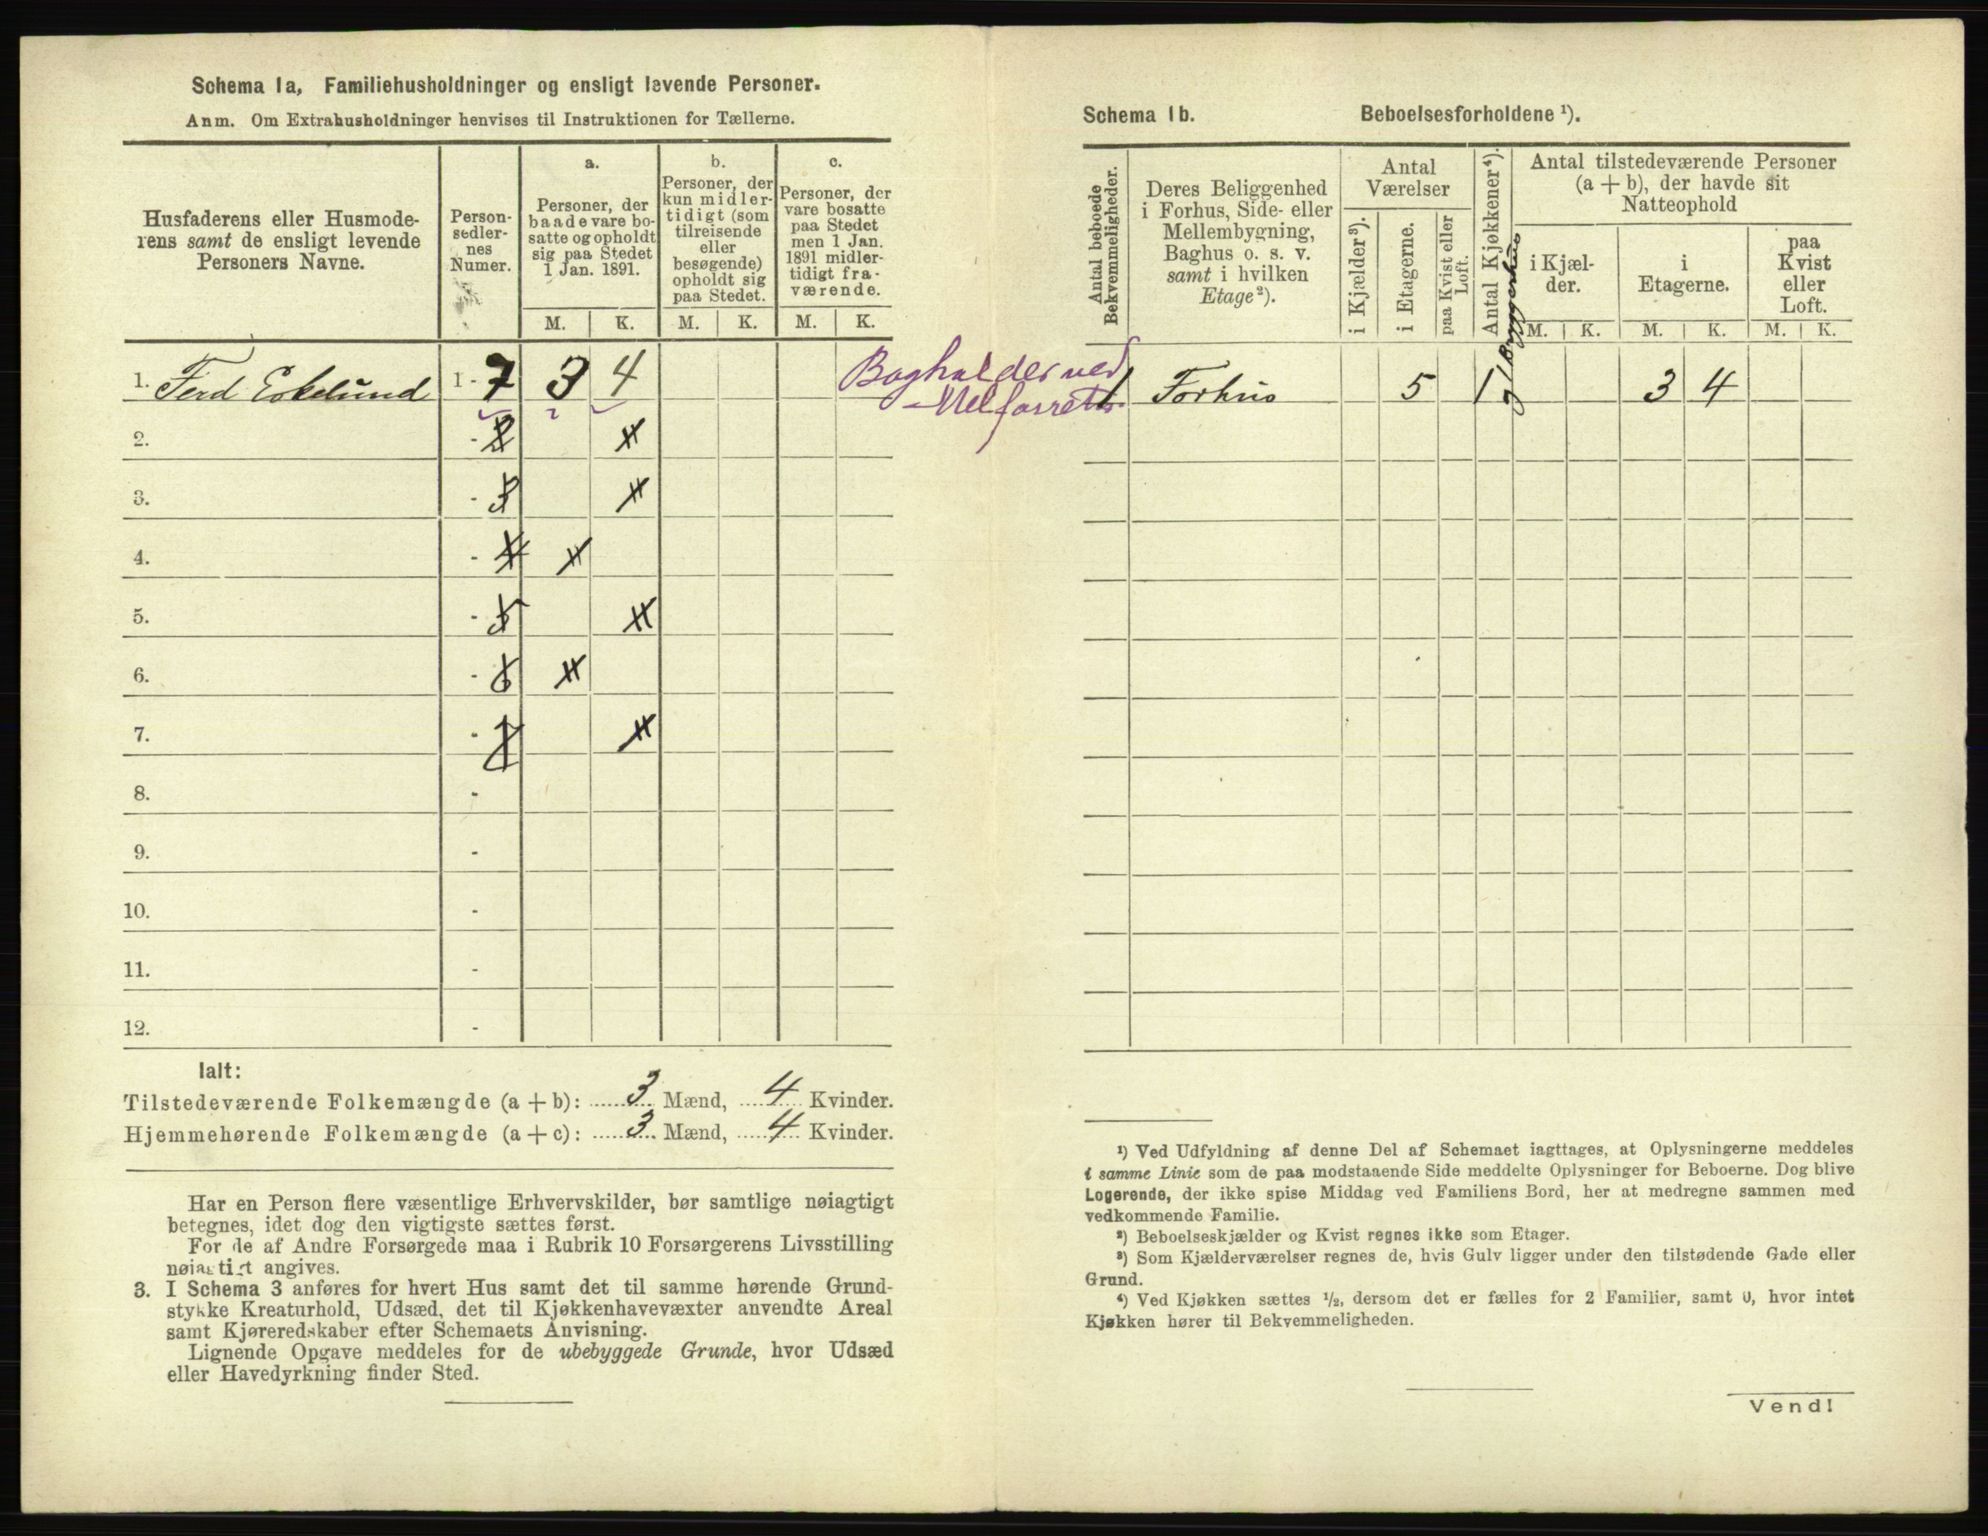 Schema 1a, Familiehusholdninger og ensligt levende Personer.
Anm. Om Extrahusholdninger henvises til Instruktionen for Tællerne.
Husfaderens eller Husmode-
rens samt de ensligt levende
Personers Navne.
Person-
sedler-
nes
Numer.
a.
Personer, der
baade vare bo-
satte og opholdt
sig paa Stedet
1 Jan. 1891.
b.
Personer, der
kun midler-
tidigt (som
tilreisende
eller
besøgende)
opholdt sig
paa Stedet.
c.
Personer, der
vare bosatte
paa Stedet
men 1 Jan.
1891 midler-
tidigt fra-
værende.
M. K. M. K. M. K.
1. Ferd Eskelund 1 - 7 3 4
Bogholder ved
2. - 2
3. - 3
4. - 4
5. - 5
6. - 6
7. - 7
8. -
9. -
10. -
11. -
12. -
Ialt:
Tilstedeværende Folkemængde (a + b): 3 Mænd, 4 Kvinder.
Hjemmehørende Folkemængde (a + c): 3 Mænd, 4 Kvinder.
Har en Person flere væsentlige Erhvervskilder, bør samtlige nøiagtigt
betegnes, idet dog den vigtigste sættes først.
For de af Andre Forsørgede maa i Rubrik 10 Forsørgerens Livsstilling
nøiagtigt angives.
3. I Schema 3 anføres for hvert Hus samt det til samme hørende Grund-
stykke Kreaturhold, Udsæd, det til Kjøkkenhavevæxter anvendte Areal
samt Kjøreredskaber efter Schemaets Anvisning.
Lignende Opgave meddeles for de ubebyggede Grunde, hvor Udsæd
eller Havedyrkning finder Sted.
Schema 1b. Beboelsesforholdene ¹).
Antal beboede
Bekvemmeligheder.
Deres Beliggenhed
i Forhus, Side- eller
Mellembygning,
Baghus o. s. v.
samt i hvilken
Etage ²).
Antal
Værelser
i Kjælder ³).
i Etagerne.
paa Kvist eller
Loft.
Antal Kjøkkener ⁴).
Antal tilstedeværende Personer
(a + b), der havde sit
Natteophold
i Kjæl-
der.
i
Etagerne.
paa
Kvist
eller
Loft.
M. K. M. K. M. K.
1 Forhus 5 1 3 4
og 1 Bryggerhus
¹) Ved Udfyldning af denne Del af Schemaet iagttages, at Oplysningerne meddeles
i samme Linie som de paa modstaaende Side meddelte Oplysninger for Beboerne. Dog blive
Logerende, der ikke spise Middag ved Familiens Bord, her at medregne sammen med
vedkommende Familie.
²) Beboelseskjælder og Kvist regnes ikke som Etager.
³) Som Kjælderværelser regnes de, hvis Gulv ligger under den tilstødende Gade eller
Grund.
⁴) Ved Kjøkken sættes ½, dersom det er fælles for 2 Familier, samt 0, hvor intet
Kjøkken hører til Bekvemmeligheden.
Vend!